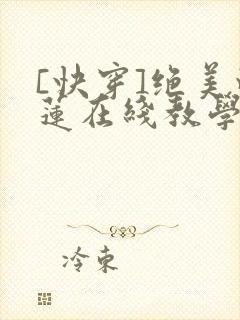 [快穿]绝美
莲在线教学
冷束